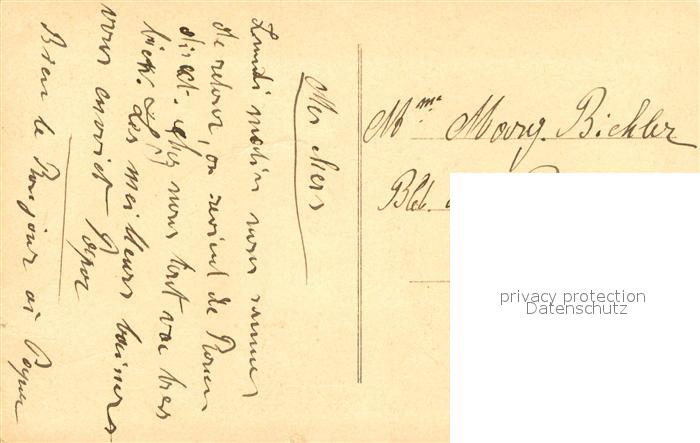 Mes chers
Lundi matin nous sommes
de retour, on revient de Rouen
direct. chez nous tout va très
bien. Les meilleurs baisers
vous envoient Papa
Bien le Bonjour à Papa
Mme Bichler
Bld.
privacy protection
Datenschutz